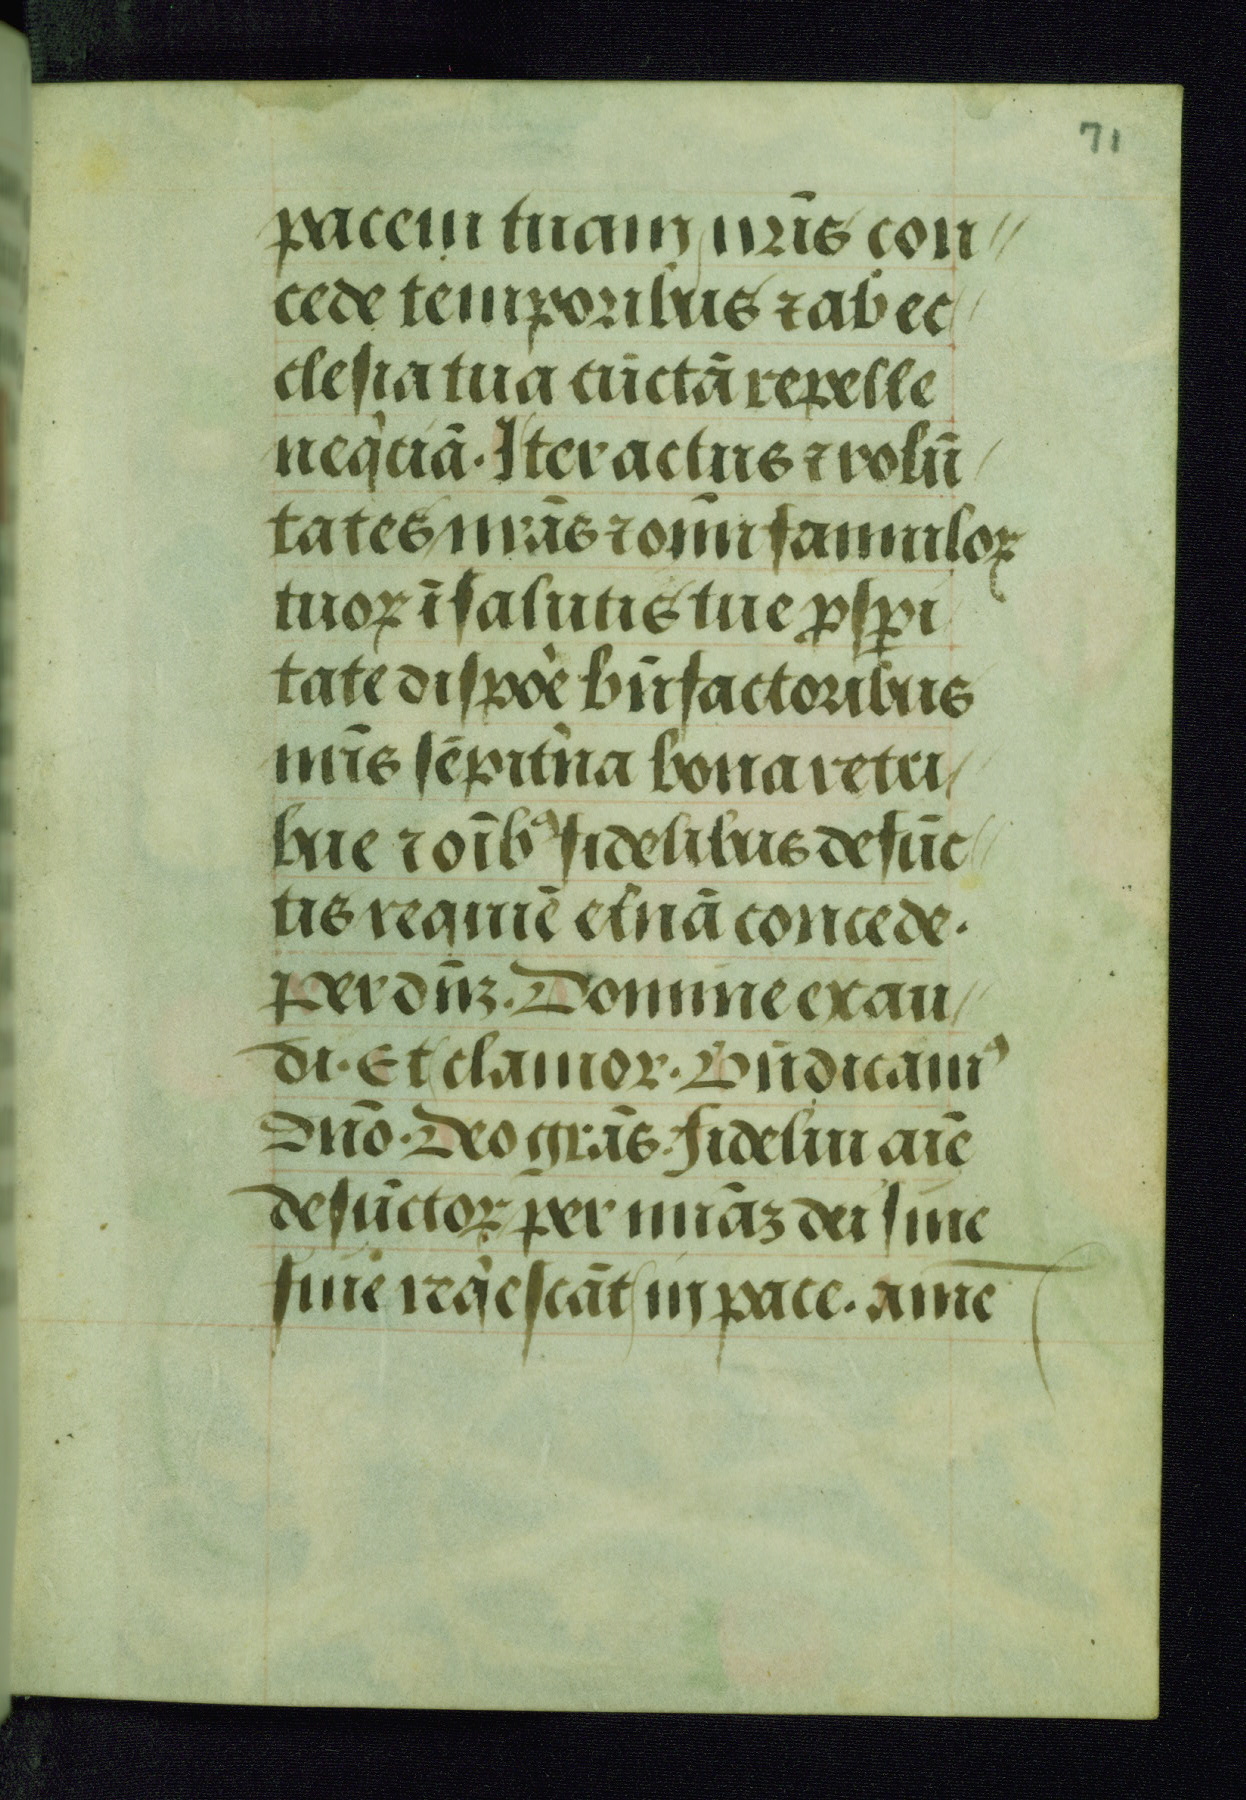 71
pacem tuam nr̄is con//
cede temporibus ⁊ ab ec/
clesia tua cūctā repelle
neq̇ciā. Iter actus ⁊ volū/
tates nrās ⁊ om̄ famuloꝝ
tuoꝝ ī salutis tue ꝓsꝑi
tate dispoe bn̄factoribus
nr̄is sēpit'na bona retri/
bue ⁊ oīb⁹ fidelibus defūc//
tis requiē et'nā concede.
per dn̄ꝫ. Domine exau//
di. Et clamor. Bn̄dicam⁹
Dn̄o. Deo grās. fideliu aīe
defūctoꝝ per miāꝫ dei sine
fine req̇escāt in pace. ame